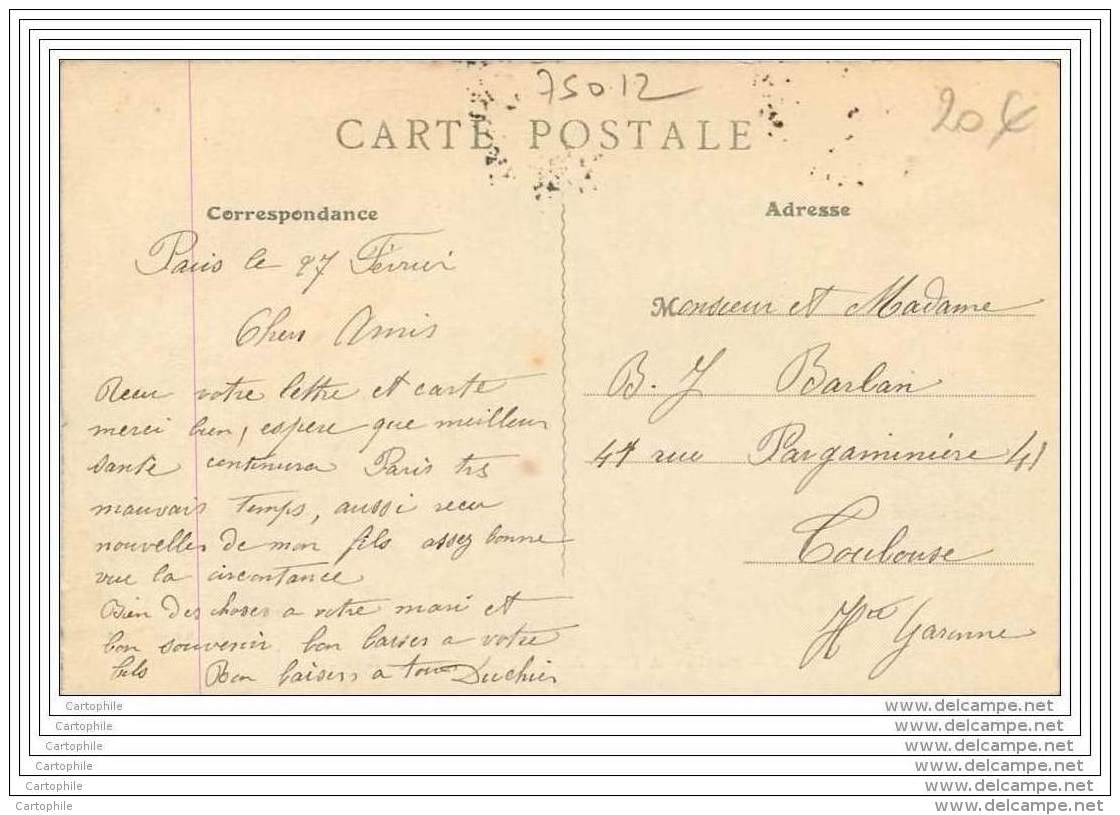 75012
20€
CARTE POSTALE
Correspondance
Paris le 27 Février
Chers Amis
Recu votre lettre et carte
merci bien, espere que meilleur
santé continura Paris trs
mauvais temps, aussi recu
nouvelles de mon fils assez bonne
vue la circontance
Bien des choses a votre mari et
bon souvenir bon baiser a votre
fils Bon baisers a tous Duchier
Adresse
Monsieur et Madame
B. J Barlan
41 rue Pargaminière 41
Toulouse
Hte Garonne
Cartophile www.delcampe.net
Cartophile www.delcampe.net
Cartophile www.delcampe.net
Cartophile www.delcampe.net
Cartophile www.delcampe.net
Cartophile www.delcampe.net